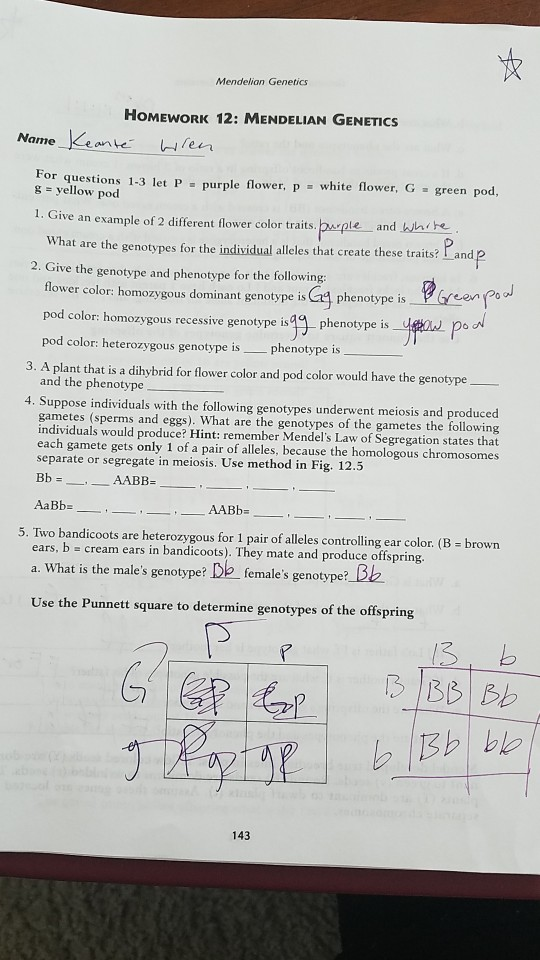 Mendelian Genetics
HOMEWORK 12: MENDELIAN GENETICS
Name Keanté Wren
For questions 1-3 let P = purple flower, p = white flower, G = green pod,
g = yellow pod
1. Give an example of 2 different flower color traits. purple and white.
What are the genotypes for the individual alleles that create these traits? P and p
2. Give the genotype and phenotype for the following:
flower color: homozygous dominant genotype is Gg phenotype is Green pod
pod color: homozygous recessive genotype is gg phenotype is pod
pod color: heterozygous genotype is ___ phenotype is ________
3. A plant that is a dihybrid for flower color and pod color would have the genotype ____
and the phenotype ________
4. Suppose individuals with the following genotypes underwent meiosis and produced
gametes (sperms and eggs). What are the genotypes of the gametes the following
individuals would produce? Hint: remember Mendel's Law of Segregation states that
each gamete gets only 1 of a pair of alleles, because the homologous chromosomes
separate or segregate in meiosis. Use method in Fig. 12.5
Bb = ___, ___ AABB= _____, _____, _____, _____
AaBb= ____, ____, ____, ____ AABb= ____, ____, ____, ____
5. Two bandicoots are heterozygous for 1 pair of alleles controlling ear color. (B = brown
ears, b = cream ears in bandicoots). They mate and produce offspring.
a. What is the male's genotype? Bb female's genotype? Bb
Use the Punnett square to determine genotypes of the offspring
P p B b
G Gp B BB Bb
g gp b Bb bb
143